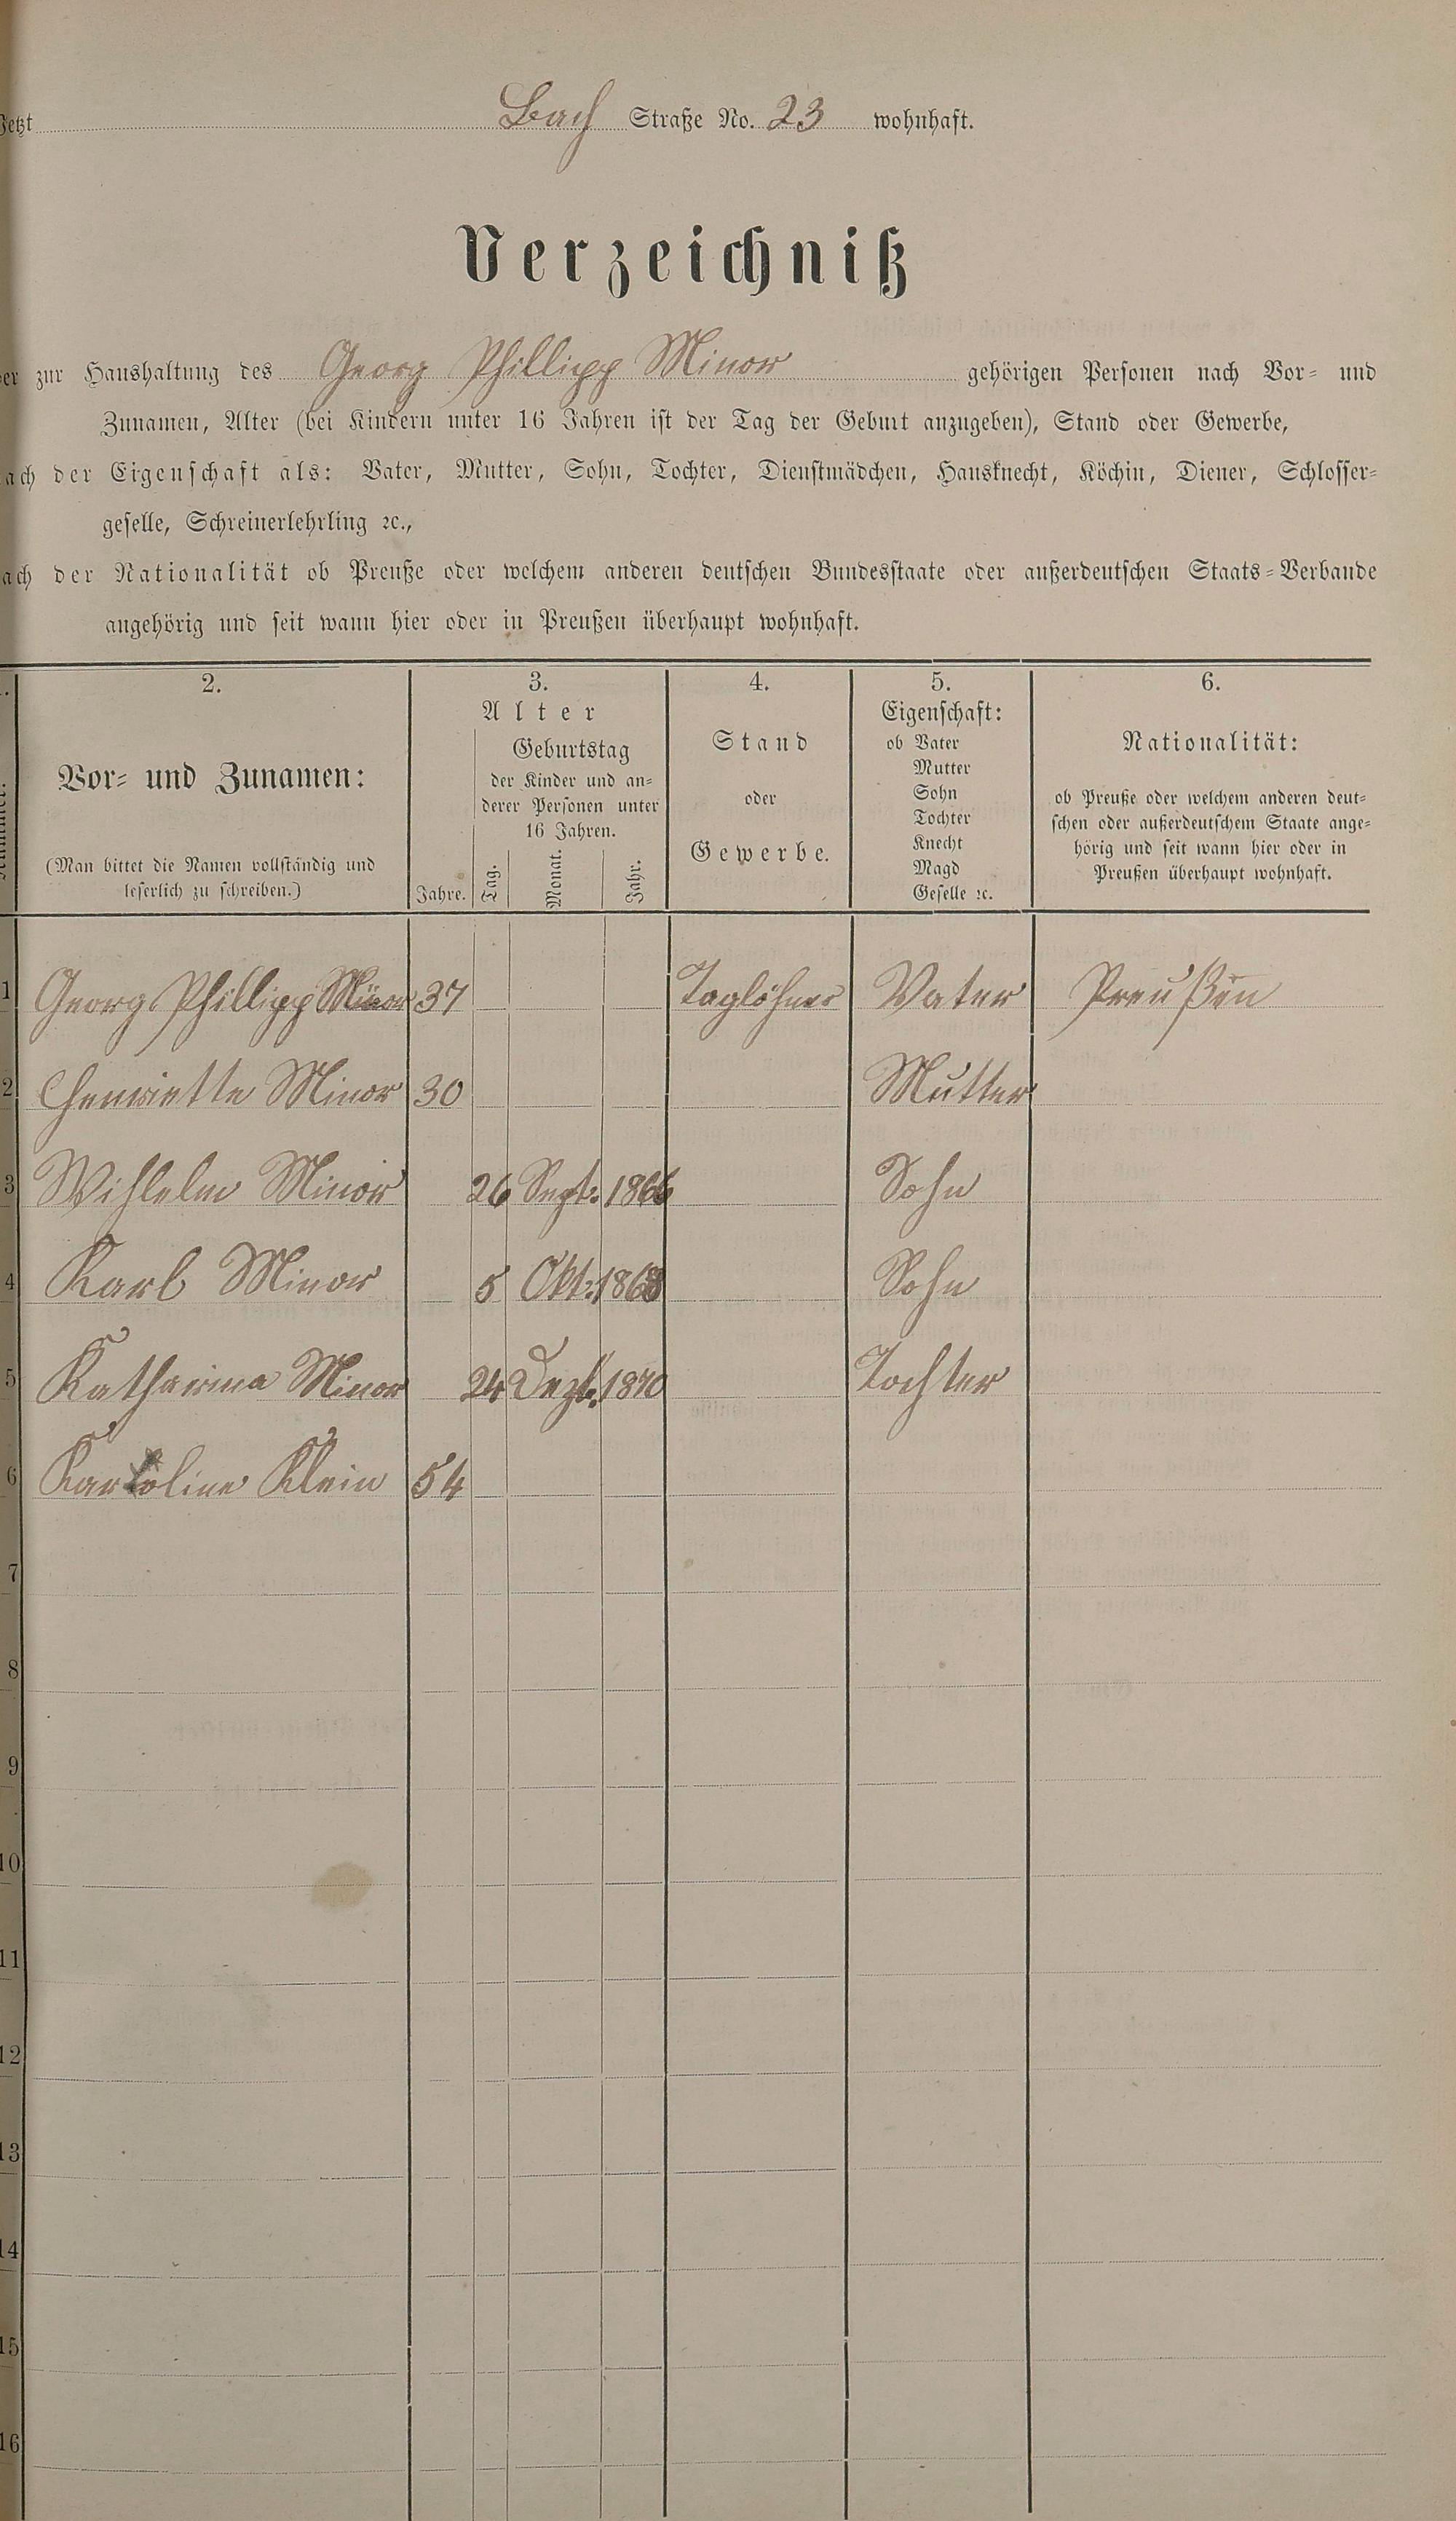 Jetzt Bach Straße No. 23 wohnhaft.
Verzeichniß
er zur Haushaltung des Georg Phillipp Minor gehörigen Personen nach Vor- und
Zunamen, Alter (bei Kindern unter 16 Jahren ist der Tag der Geburt anzugeben), Stand oder Gewerbe,
ach der Eigenschaft als: Vater, Mutter, Sohn, Tochter, Dienstmädchen, Hausknecht, Köchin, Diener, Schlosser-
geselle, Schreinerlehrling ꝛc.,
ach der Nationalität ob Preuße oder welchem anderen deutschen Bundesstaate oder außerdeutschen Staats-Verbande
angehörig und seit wann hier oder in Preußen überhaupt wohnhaft.
2.
Vor- und Zunamen:
(Man bittet die Namen vollständig und
leserlich zu schreiben.)
3.
Alter
Jahre.
Geburtstag
der Kinder und an-
derer Personen unter
16 Jahren.
Tag.
Monat.
Jahr.
4.
Stand
oder
Gewerbe.
5.
Eigenschaft:
ob Vater
Mutter
Sohn
Tochter
Knecht
Magd
Geselle ꝛc.
6.
Nationalität:
ob Preuße oder welchem anderen deut-
schen oder außerdeutschem Staate ange-
hörig und seit wann hier oder in
Preußen überhaupt wohnhaft.
1 Georg Phillipp Minor 37 Taglöhner Vater Preußen
2 Henriette Minor 30 Mutter
3 Wihlelm Minor 26 Sept. 1866 Sohn
4 Karl Minor 5 Okt. 1868 Sohn
5 Katharina Minor 24 Dezb. 1870 Tochter
6 Karoline Klein 54
7
8
9
10
11
12
13
14
15
16